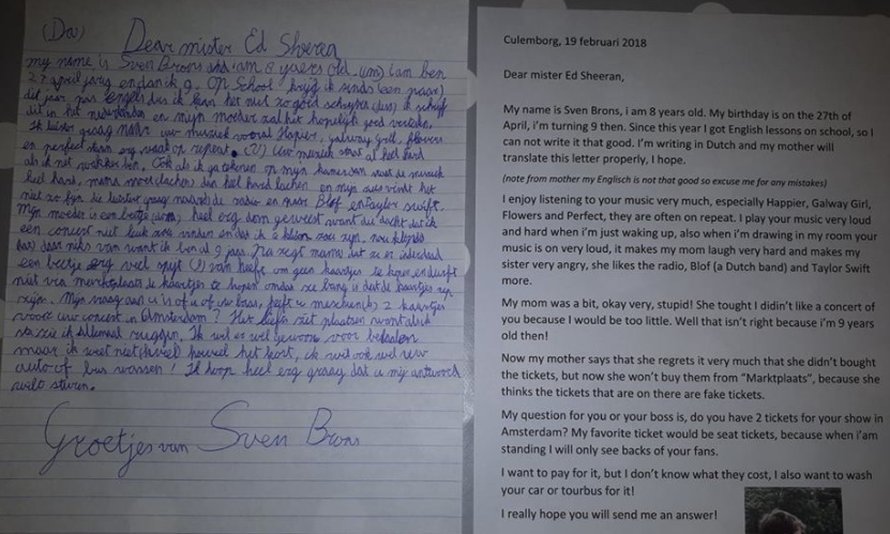 (Da) Dear mister Ed Sheeran
my name is Sven Brons and i am 8 years old. (um) i am ben
27 april jarig en dan ik 9. Op School krijg ik sinds (een paar)
dit jaar pas engels dus ik kan het niet zo goed schrijven (dus) ik schrijf
dit in het nederlands en mijn moeder zal het hopelijk goed vertalen.
Ik luister graag naar uw muziek vooral Hapier, galway girl, flowers
en perfect staan erg vaak op repeat. (U) Uw muziek staat al heel hard
als ik net wakker ben. Ook als ik ga tekenen op mijn kamer staat de muziek
heel hard, mama moet (lachen) dan heel hard lachen en mijn zus vindt het
niet zo fijn ze luistert graag naar de radio en naar Blof en Taylor swift.
Mijn moeder is een beetje heel erg dom geweest want die dacht dat ik
een concert niet leuk zou vinden en dat ik te klein zou zijn, nou
daar niks van want ik ben al 9 jaar. zegt mama dat ze er inderdaad
een beetje erg veel spijt van heeft om geen kaartjes te kopen en durft
niet van marktplaats de kaartjes te kopen omdat ze bang is dat de kaartjes nep
zijn. Mijn vraag aan u is of u of uw baas, heeft u misschien 2 kaartjes
voor uw concert in Amsterdam? Het liefst zit plaatsen want als ik
sta zie ik allemaal ruggen. Ik wil er wel gewoon voor betalen
maar ik weet niet hoeveel het kost, ik wil ook wel uw
auto of bus wassen! Ik hoop heel erg graag dat u mij antwoord
wilt sturen.
Groetjes van Sven Brons
Culemborg, 19 februari 2018
Dear mister Ed Sheeran,
My name is Sven Brons, i am 8 years old. My birthday is on the 27th of
April, i'm turning 9 then. Since this year I got English lessons on school, so I
can not write it that good. I'm writing in Dutch and my mother will
translate this letter properly, I hope.
(note from mother my Englisch is not that good so excuse me for any mistakes)
I enjoy listening to your music very much, especially Happier, Galway Girl,
Flowers and Perfect, they are often on repeat. I play your music very loud
and hard when i'm just waking up, also when i'm drawing in my room your
music is on very loud, it makes my mom laugh very hard and makes my
sister very angry, she likes the radio, Blof (a Dutch band) and Taylor Swift
more.
My mom was a bit, okay very, stupid! She tought I didin't like a concert of
you because I would be too little. Well that isn't right because i'm 9 years
old then!
Now my mother says that she regrets it very much that she didn't bought
the tickets, but now she won't buy them from "Marktplaats", because she
thinks the tickets that are on there are fake tickets.
My question for you or your boss is, do you have 2 tickets for your show in
Amsterdam? My favorite ticket would be seat tickets, because when i'am
standing I will only see backs of your fans.
I want to pay for it, but I don't know what they cost, I also want to wash
your car or tourbus for it!
I really hope you will send me an answer!